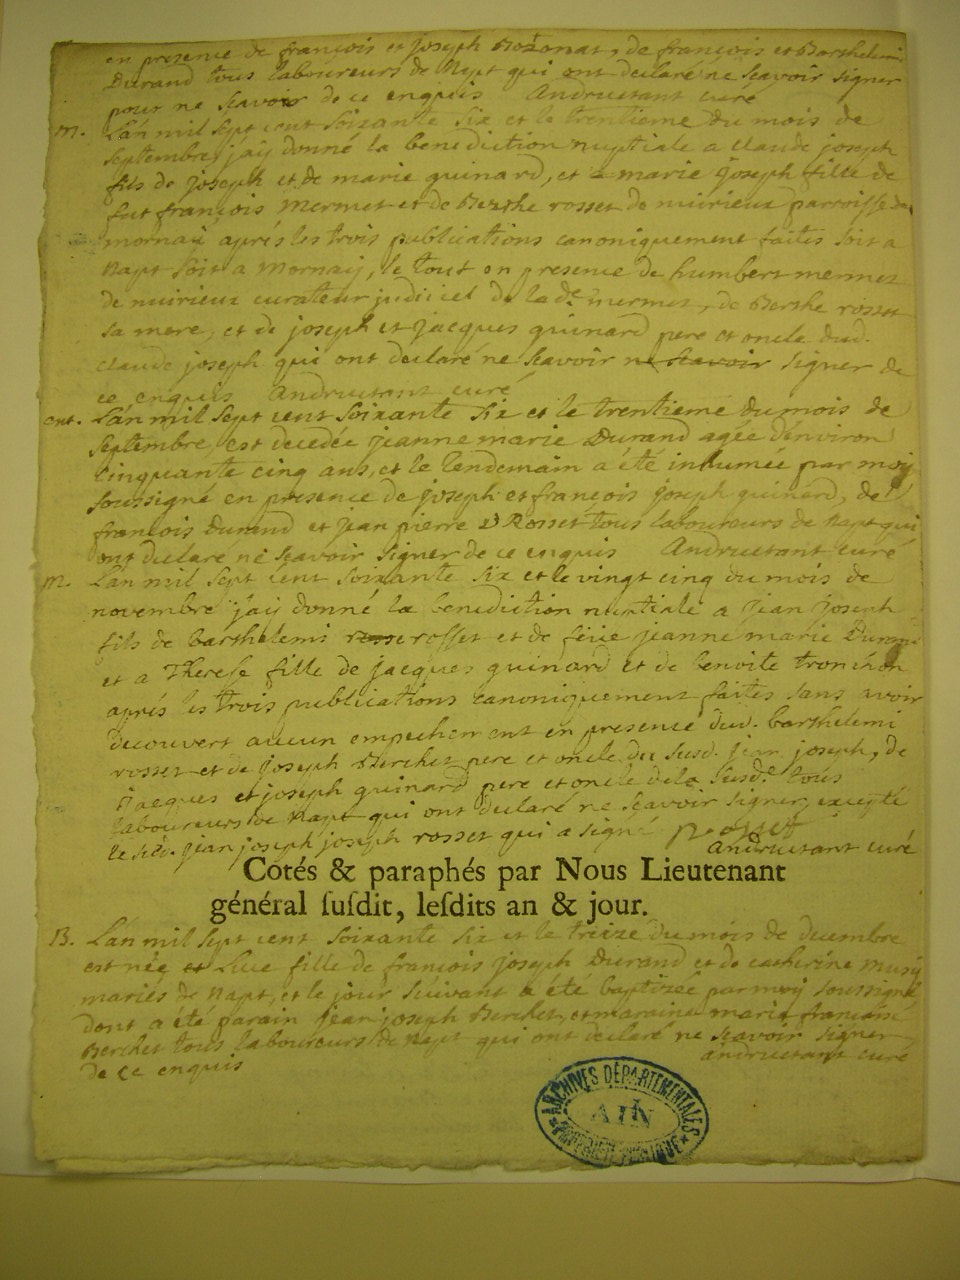 en presence de françois et joseph Bozonat, de françois et Barthelemi
Durand tous laboureurs de Napt qui ont declaré ne scavoir signer
pour ne scavoir de ce enquis Andruetant curé
m. L'an mil sept cent soixante six et le trentieme du mois de
septembre, j'ay donné la benediction nuptiale a claude joseph
fils de joseph et de marie guinard, et a marie joseph fille de
fut françois mermet et de Berthe rosset de muirieux parroisse de
mornay aprés les trois publications canoniquement faites soit a
Napt soit a Mornay, le tout en presence de humbert mermet
de muirieux curateur judiciel de lade. mermet, de Berthe rosset
sa mere, et de joseph et jacques guinard pere et oncle dud.
claude joseph qui ont declaré ne scavoir ne scavoir signer de
ce enquis Andruetant curé
ent. L'an mil sept cent soixante six et le trentieme du mois de
septembre, est decedée jeanne marie Durand agée d'environ
cinquante cinq ans, et le lendemain a été inhumée par moy
soussigné en presence de joseph et françois joseph guinard, de
françois Durand et jean pierre Rosset tous laboureurs de Napt qui
ont declaré ne scavoir signer de ce enquis Andruetant curé
m. L'an mil sept cent soixante six et le vingt cinq du mois de
novembre j'ay donné la benediction nuptiale a jean joseph
fils de barthelemi rosset et de feüe jeanne marie Durand
et a Therese fille de jacques guinard et de benoite tronchon
aprés les trois publications canoniquement faites sans avoir
decouvert aucun empechement en presence dud. barthelemi
rosset et de joseph Berchet pere et oncle du susd. jean joseph, de
jacques et joseph guinard pere et oncle dela susde. tous
laboureurs de Napt qui ont declaré ne scavoir signer, excepté
le sud. jean joseph joseph rosset qui a signé rosset
Andruetant curé
Cotés & paraphés par Nous Lieutenant
général ſuſdit, leſdits an & jour.
B. L'an mil sept cent soixante six et le treize du mois de decembre
est née et Luce fille de françois joseph Durand et de catherine musy
mariés de Napt, et le jour suivant a été baptizée par moy soussigné,
dont a été parain jean joseph Berchet, et maraine marie françoise
Berchet tous laboureurs de Napt qui ont declaré ne scavoir signer
de ce enquis andruetant curé
ARCHIVES DÉPARTEMENTALES
AIN
PROPRIÉTÉ PUBLIQUE